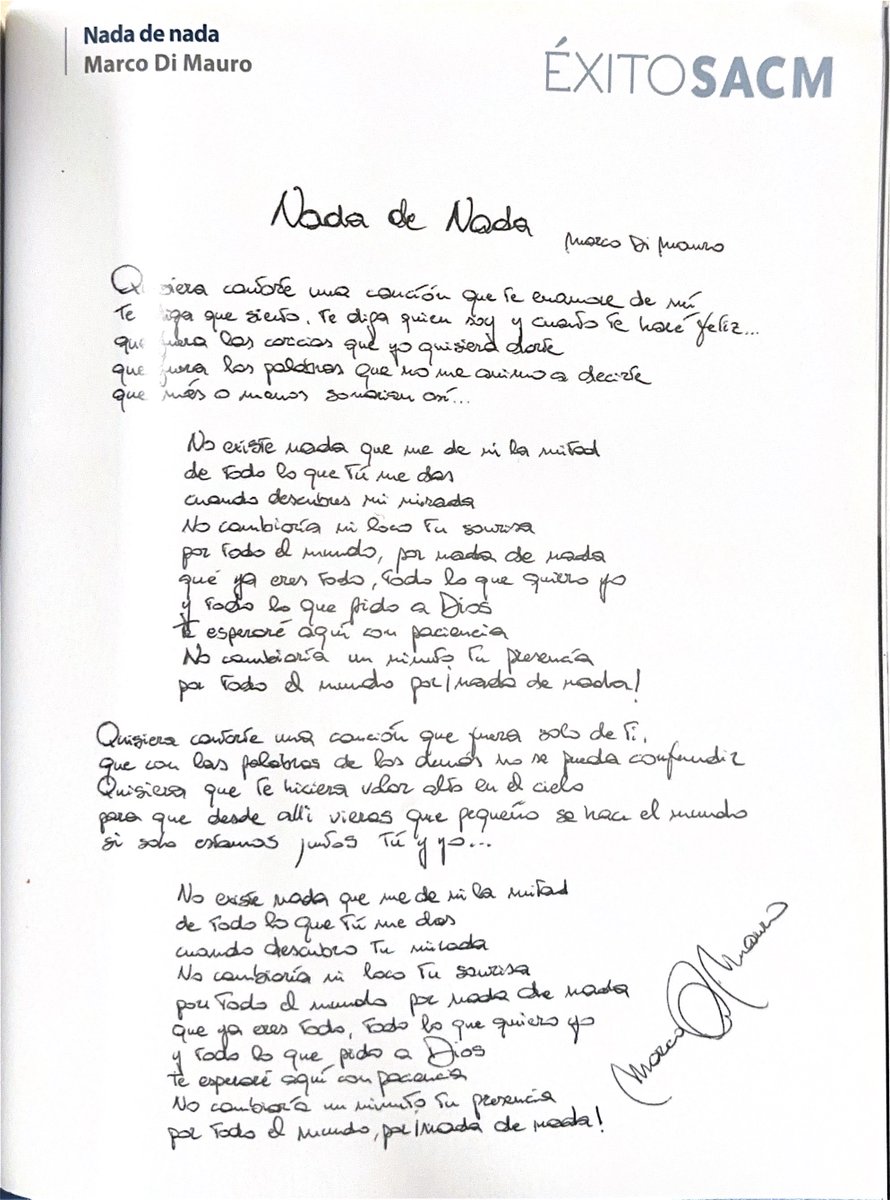 Nada de nada
Marco Di Mauro
ÉXITOSACM
Nada de Nada
Marco Di Mauro
Quisiera cantarte una canción que te enamore de mí
te diga que siento, te diga quien soy y cuanto te haré feliz...
que fuera las caricias que yo quisiera darte
que fuera las palabras que no me animo a decirte
que más o menos sonarian así...
No existe nada que me de ni la mitad
de todo lo que tú me das
cuando descubres mi mirada
No cambiaría ni loco tu sonrisa
por todo el mundo, por nada de nada
qué ya eres todo, todo lo que quiero yo
y todo lo que pido a Dios
te esperaré aquí con paciencia
No cambiaría un minuto tu presencia
por todo el mundo por ¡nada de nada!
Quisiera cantarte una canción que fuera solo de ti,
que con las palabras de los demás no se pueda confundir
Quisiera que te hiciera volar alto en el cielo
para que desde alli vieras que pequeño se hace el mundo
si solo estamos juntos Tú y yo...
No existe nada que me de ni la mitad
de todo lo que tú me das
cuando descubro tu mirada
No cambiaría ni loco tu sonrisa
por todo el mundo por nada de nada
que ya eres todo, todo lo que quiero yo
y todo lo que pido a Dios
te esperaré aquí con paciencia
No cambiaría un minuto tu presencia
por todo el mundo, por ¡nada de nada!
Marco Di Mauro